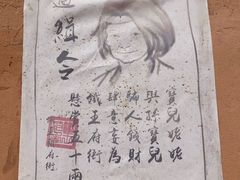 通緝令
寶兒姥姥
與孫寶兒
騙人錢財
肆意妄為
鐵王府衙
懸賞五十兩
府衙